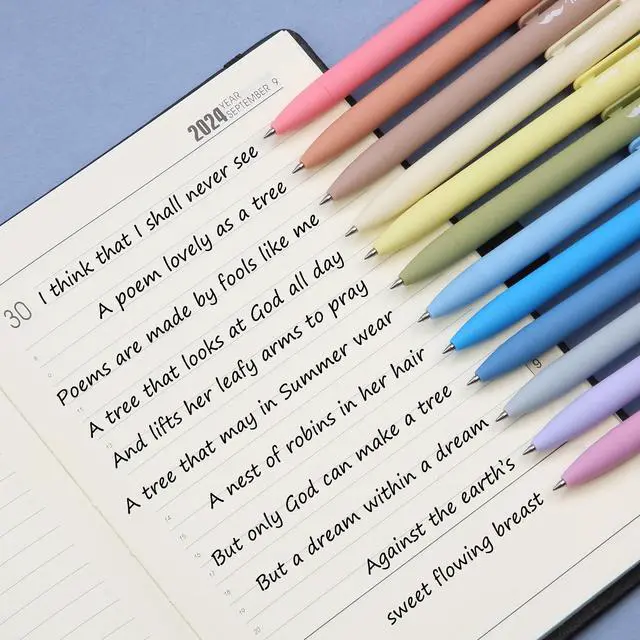 2024
YEAR
SEPTEMBER 9
30
I think that I shall never see
A poem lovely as a tree
Poems are made by fools like me
A tree that looks at God all day
And lifts her leafy arms to pray
A tree that may in Summer wear
A nest of robins in her hair
But only God can make a tree
But a dream within a dream
Against the earth's
sweet flowing breast
9